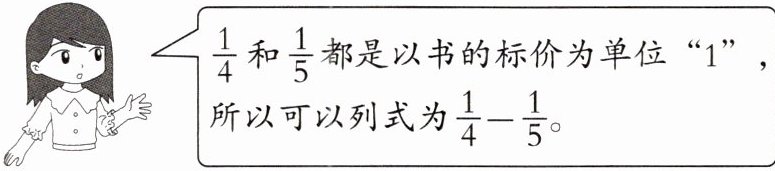 1/4 和 1/5 都是以书的标价为单位“1”，
所以可以列式为 1/4 － 1/5。